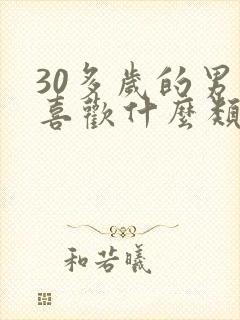 30多歲的男
喜歡什麼類
和若曦